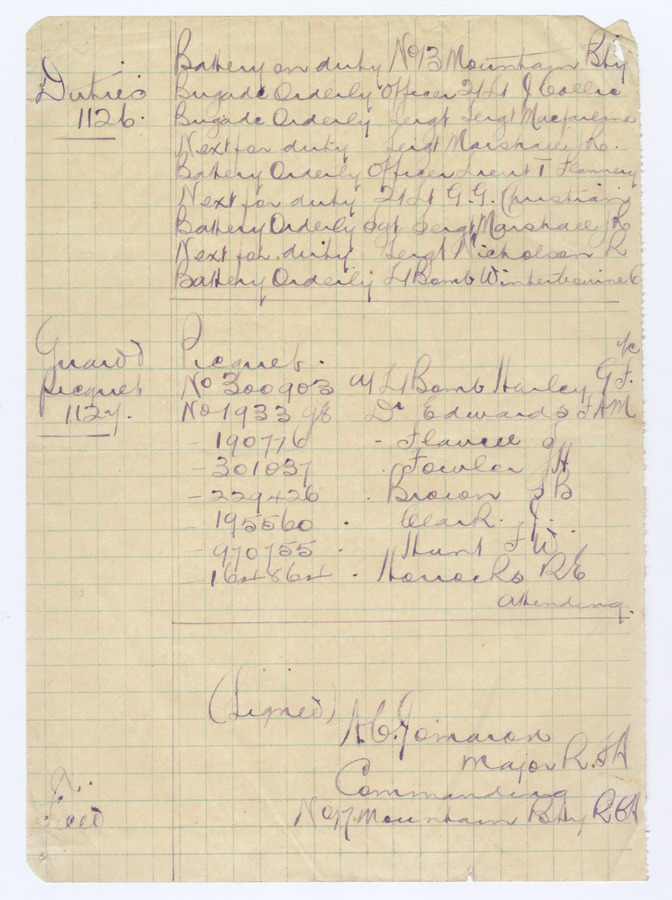 Duties
1126.
Battery on duty No 13 Mountain Bty
Brigade Orderly Officer 2/Lt J Collie
Brigade Orderly Sergt Sergt Macfarlane
Next for duty Sergt Marshall R.
Battery Orderly Officer Lieut T Flannery
Next for duty 2/Lt G.G. Christian
Battery Orderly Sgt Sergt Marshall R
Next for duty Sergt Nicholson R
Battery Orderly L/Bomb Winterbourne C
Guard
Picquet
1127.
Picquet.
No 300903 L/Bomb Harley G.F.
No 193398 Dr Edwards F A M
- 190776 - Flavell J
- 301037 . Fowler J H
- 229426 . Brown J B
- 195560 . Clark. J.
- 970755 . Hunt F W.
- 164864 . Horrocks R E
attending.
(Signed)
Major R.F.A
Commanding
Mountain Bty R G A